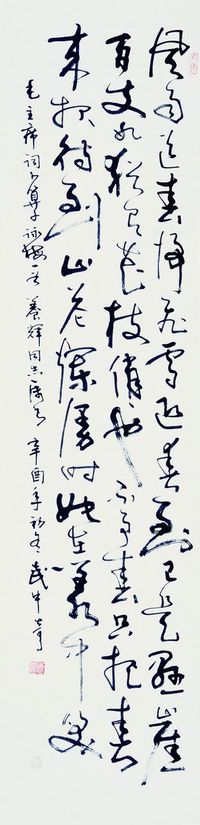 风雨送春归飞雪迎春到已是悬崖
百丈冰犹有花枝俏俏也不争春只把春
来报待到山花烂漫时她在丛中笑
毛主席词卜算子咏梅一首 养辉同志属 辛酉年初冬 武中奇